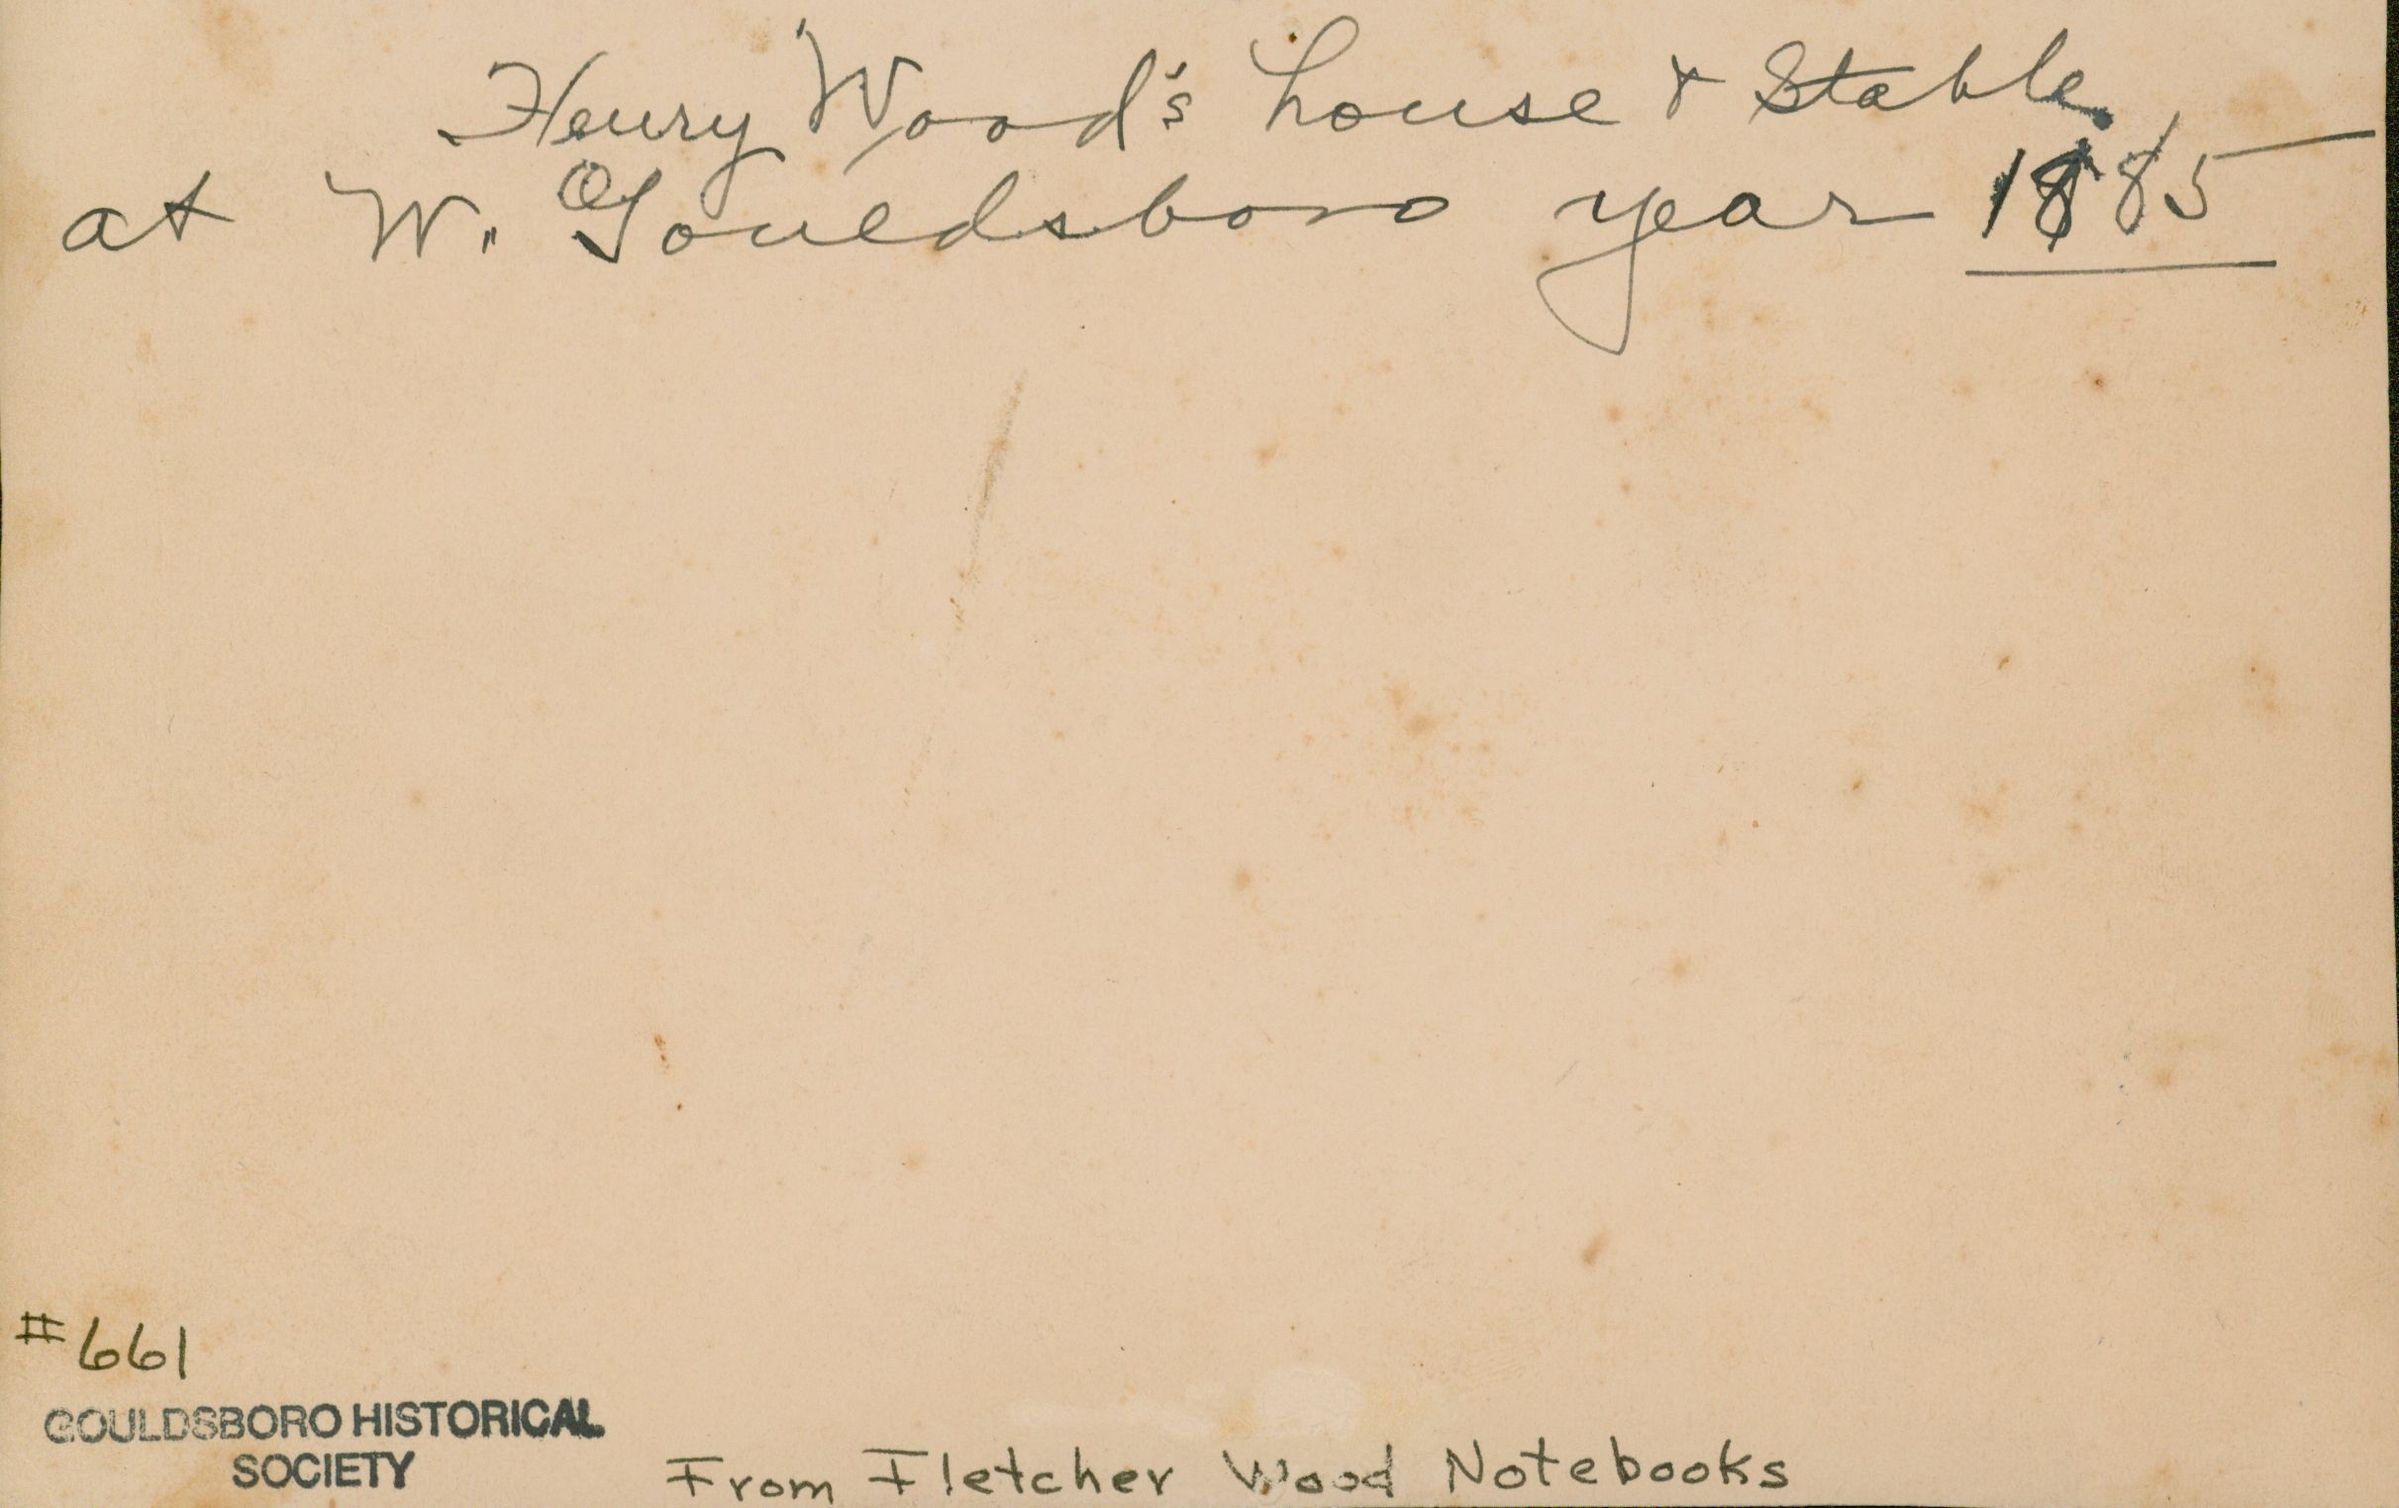 Henry Wood's house & Stable
at W. Gouldsboro year 1885
#661
GOULDSBORO HISTORICAL
SOCIETY
From Fletcher Wood Notebooks